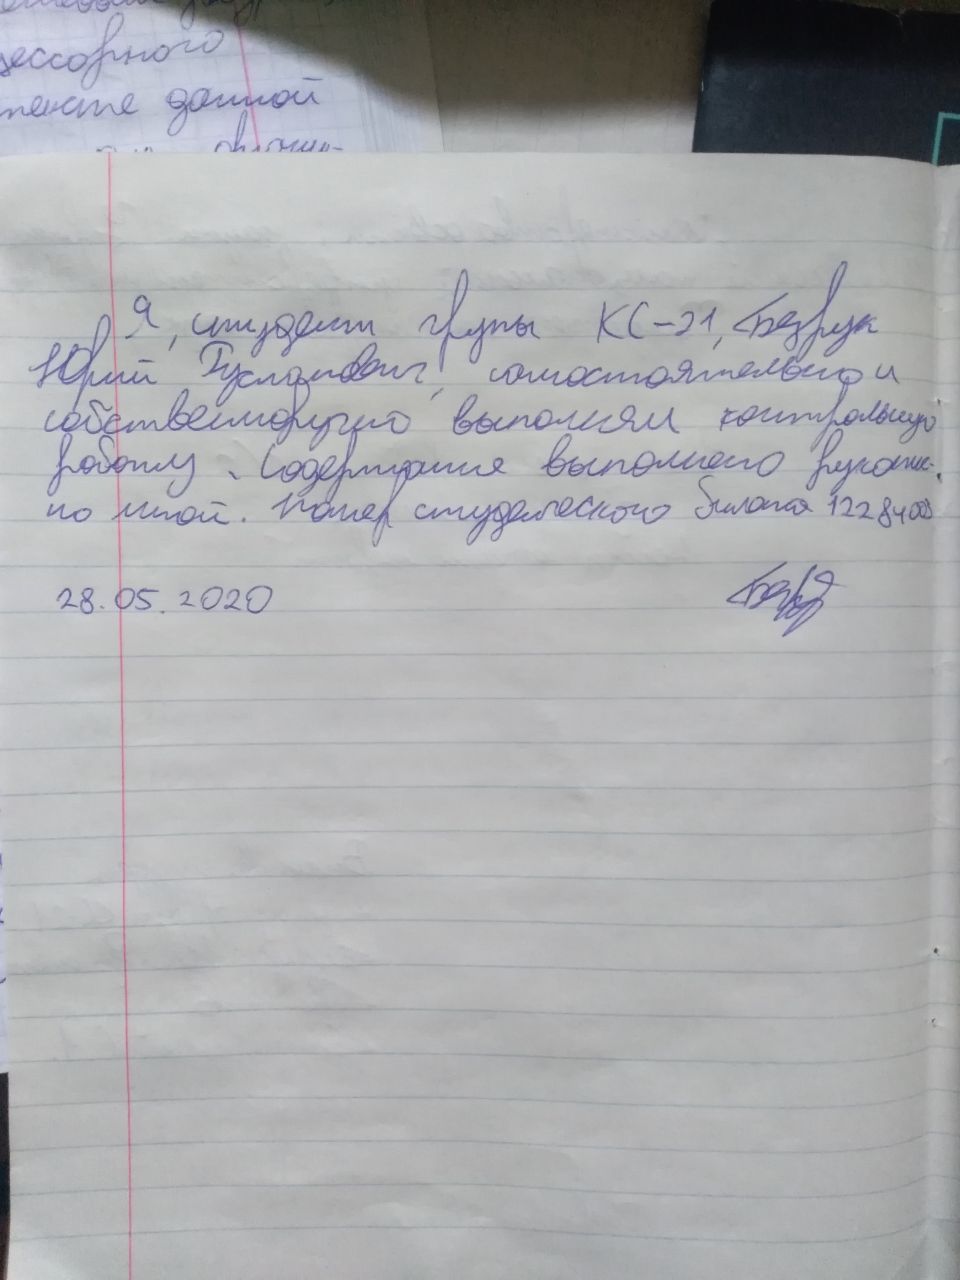 цессорного
тексте данной
Я, студент групы КС-21, Безрук
Юрий Русланович, самостоятельно и
собственоручно выполнял контрольную
работу. Содержания выполнено рукопис-
но мной. Номер студенческого билата
28.05.2020